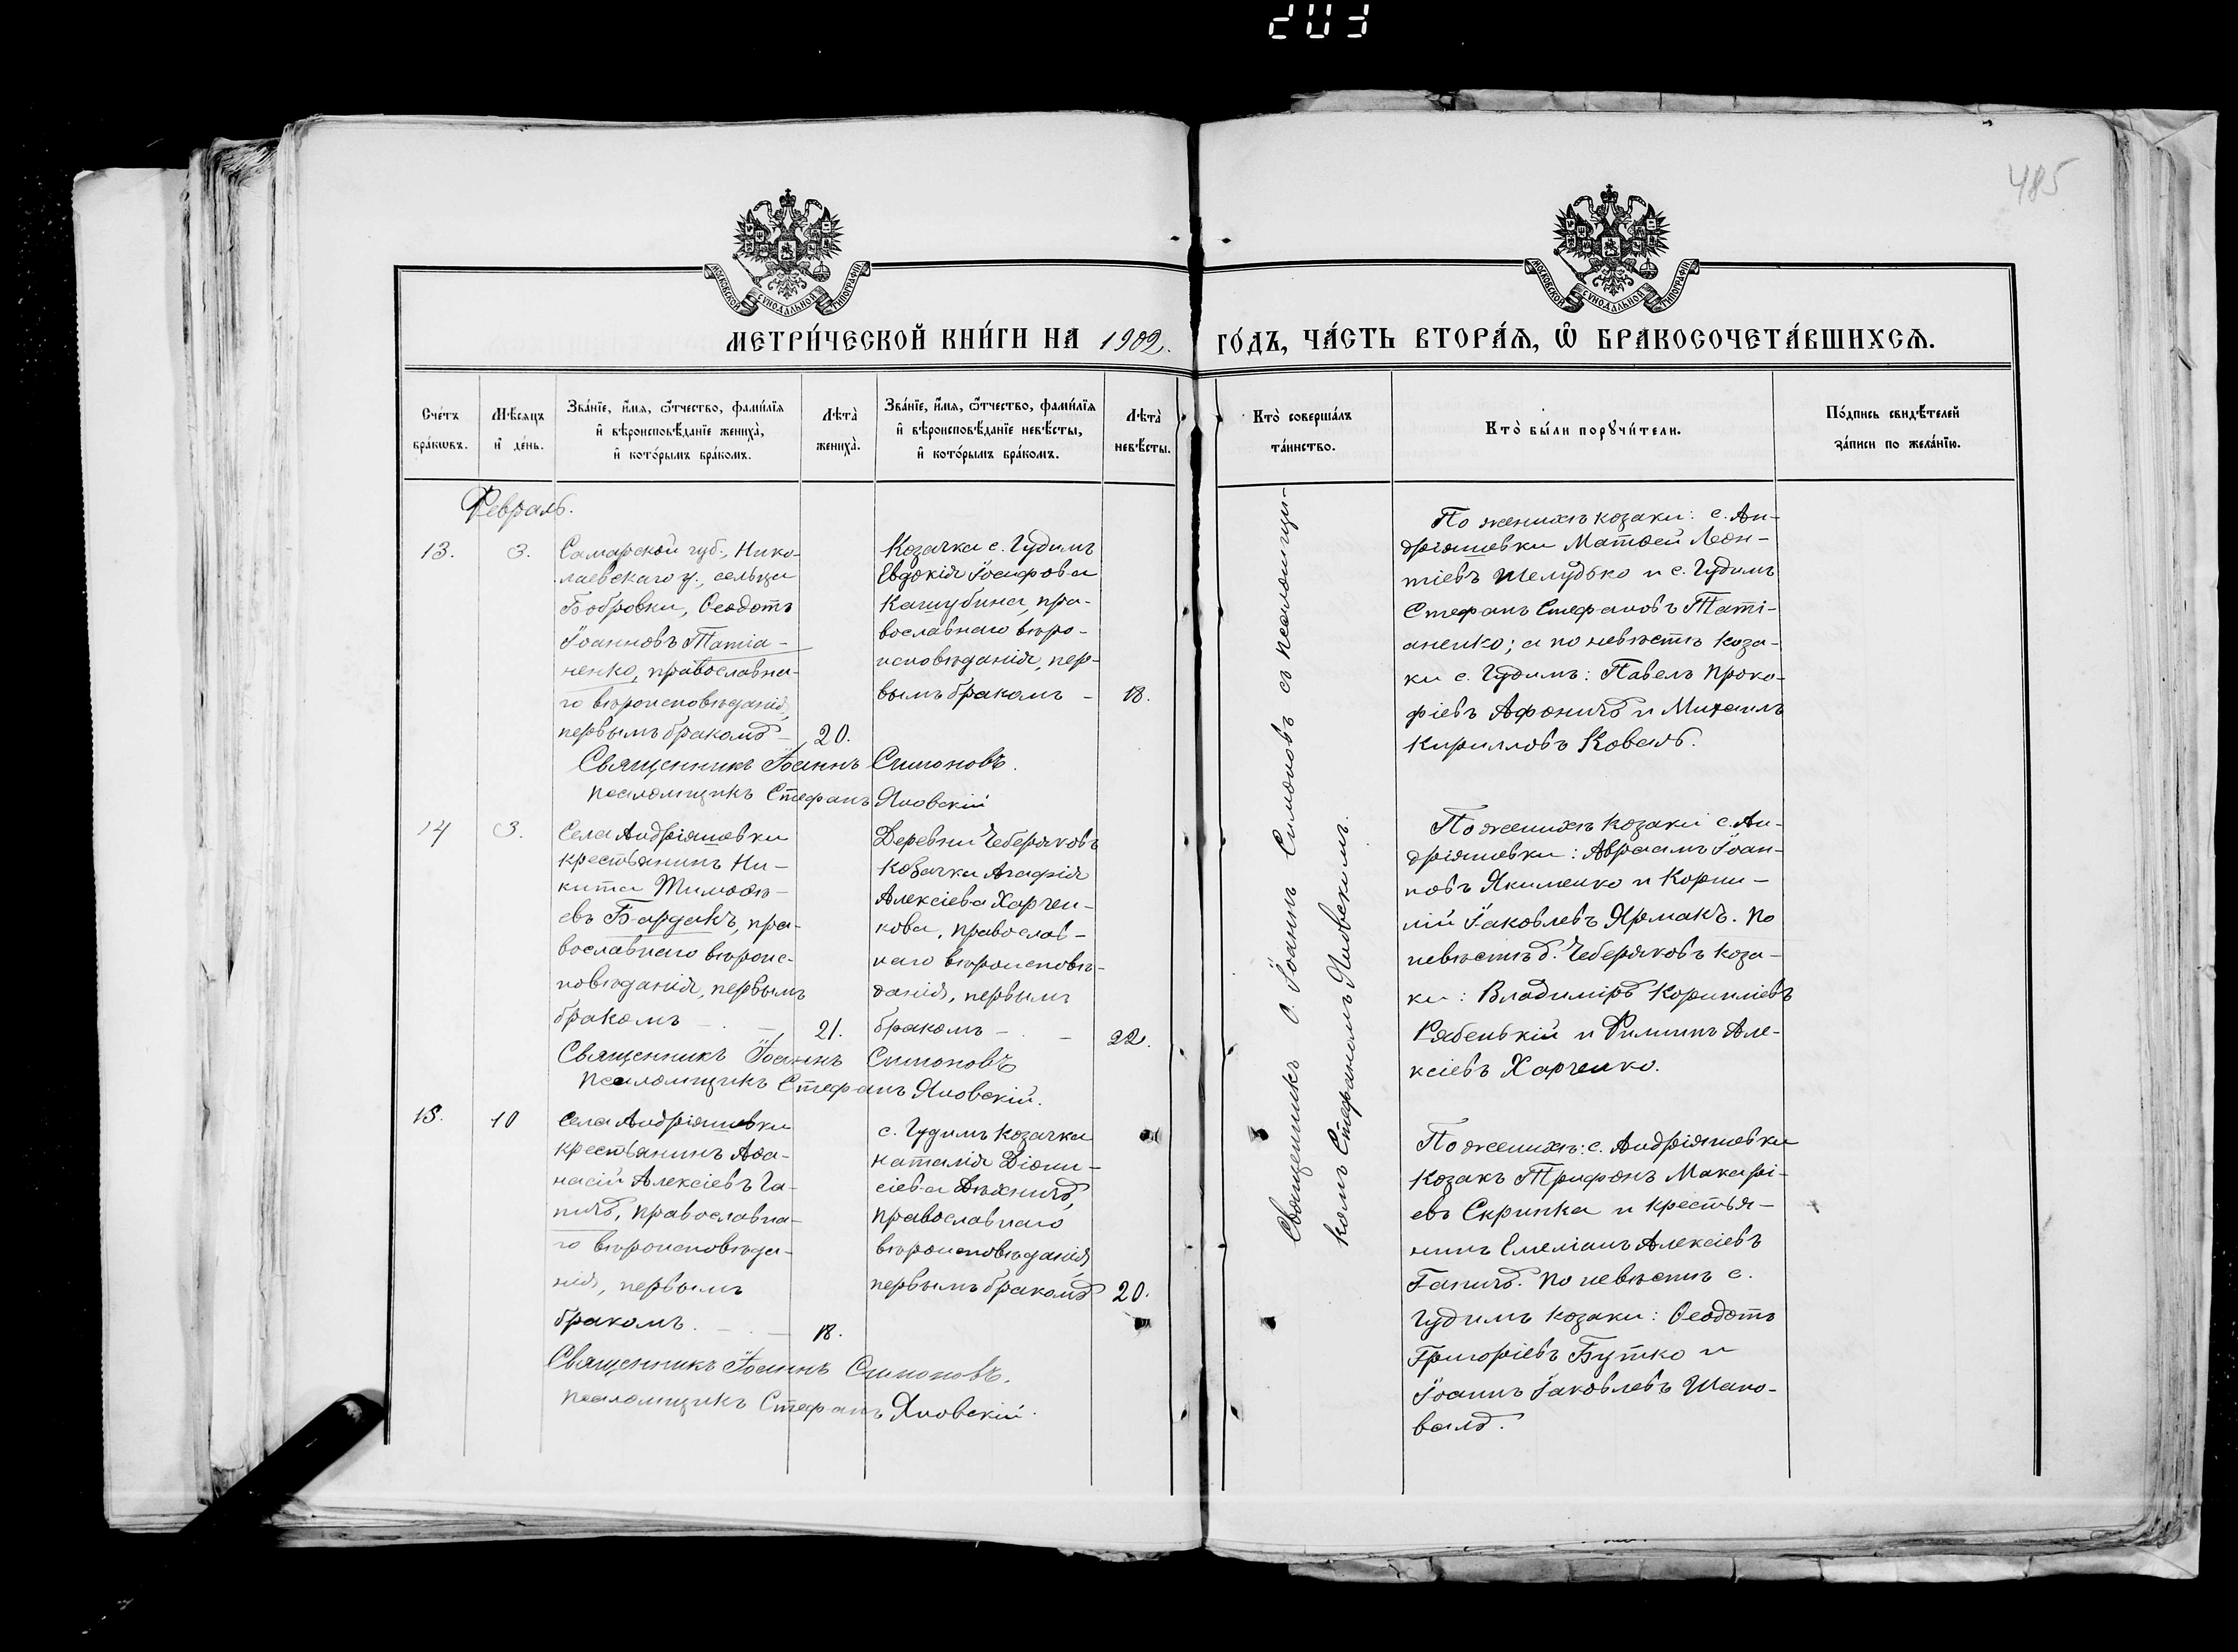 203
485
МОСКОВСКОЙ СѴНОДАЛЬНОЙ ТИПОГРАФІИ
МОСКОВСКОЙ СѴНОДАЛЬНОЙ ТИПОГРАФІИ
МЕТРИ́ЧЕСКОЙ КНИ́ГИ НА 1902. ГО́ДЪ, ЧА́СТЬ ВТОРА́Я, Ѡ҆ БРАКОСОЧЕТА́ВШИХСѦ.
Сче́тъ
бра́кѡвъ.
Мѣ́сяцъ
и҆ де́нь.
Зва́нїе, и҆́мѧ, ѻ҆́тчество, фамилїѧ
и҆ вѣроисповѣ́данїе жениха̀,
и҆ кото́рымъ бра́комъ.
Лѣта̀
жениха̀.
Зва́нїе, и҆́мѧ, ѻ҆́тчество, фамилїѧ
и҆ вѣроисповѣ́данїе невѣ́сты,
и҆ кото́рымъ бра́комъ.
Лѣта̀
невѣ́сты.
Кто̀ соверша́лъ
та́инство.
Кто̀ бы́ли порꙋчи́тели.
По́дпись свидѣ́телей
за́писи по жела́нїю.
Февраль.
13.
3.
Самарской губ., Нико-
лаевскаго у., сельца
Бобровки, Ѳеодотъ
Іоанновъ Татіа-
ненко, православна-
го вѣроисповѣданія,
первымъ бракомъ –
20.
Козачка с. Гудимъ
Евдокія Іосифова
Кашубина, пра-
вославнаго вѣро-
исповѣданія, пер-
вымъ бракомъ –
18.
Священникъ Іоаннъ Симоновъ.
Псаломщикъ Стефанъ Яновскій
По женихѣ козаки: с. Ан-
дріяшевки Матѳей Леон-
тіевъ Шелудько и с. Гудимъ
Стефанъ Стефановъ Таті-
аненко; а по невѣстѣ коза-
ки с. Гудимъ: Павелъ Проко-
фіевъ Афоничъ и Михаилъ
Кирилловъ Коваль.
14
3.
Села Андріяшевки
крестьянинъ Ни-
кита Тимоѳѣ-
евъ Бардакъ, пра-
вославнаго вѣроис-
повѣданія, первымъ
бракомъ – –
21.
Деревни Чеберяковъ
козачка Агафія
Алексіева Харчен-
кова, православ-
наго вѣроисповѣ-
данія, первымъ
бракомъ – –
22.
Священникъ Іоаннъ Симоновъ
Псаломщикъ Стефанъ Яновскій.
По женихѣ козаки с. Ан-
дріяшевки: Авраамъ Іоан-
новъ Якименко и Корни-
лій Іаковлевъ Ярмакъ. По
невѣстѣ д. Чеберяковъ коза-
ки: Владиміръ Корниліевъ
Рябенькій и Филиппъ Але-
ксіевъ Харченко.
15.
10
Села Андріяшевки
крестьянинъ Аѳа-
насій Алексіевъ Га-
пичъ, православна-
го вѣроисповѣда-
нія, первымъ
бракомъ. – –
18.
с. Гудимъ козачка
Наталія Діони-
сіева
православнаго
вѣроисповѣданія,
первымъ бракомъ
20.
Священникъ Іоаннъ Симоновъ.
Псаломщикъ Стефанъ Яновскій.
По женихѣ: с. Андріяшевки
козакъ Трифонъ Макарі-
евъ Скрипка и крестья-
нинъ Емеліанъ Алексіевъ
Гапичъ. По невѣстѣ с.
Гудимъ козаки: Ѳеодотъ
Григоріевъ Бутко и
Іоаннъ Іаковлевъ Шапо-
валъ.
Священникъ о. Іоаннъ Симоновъ съ псаломщи-
комъ Стефаномъ Яновскимъ.